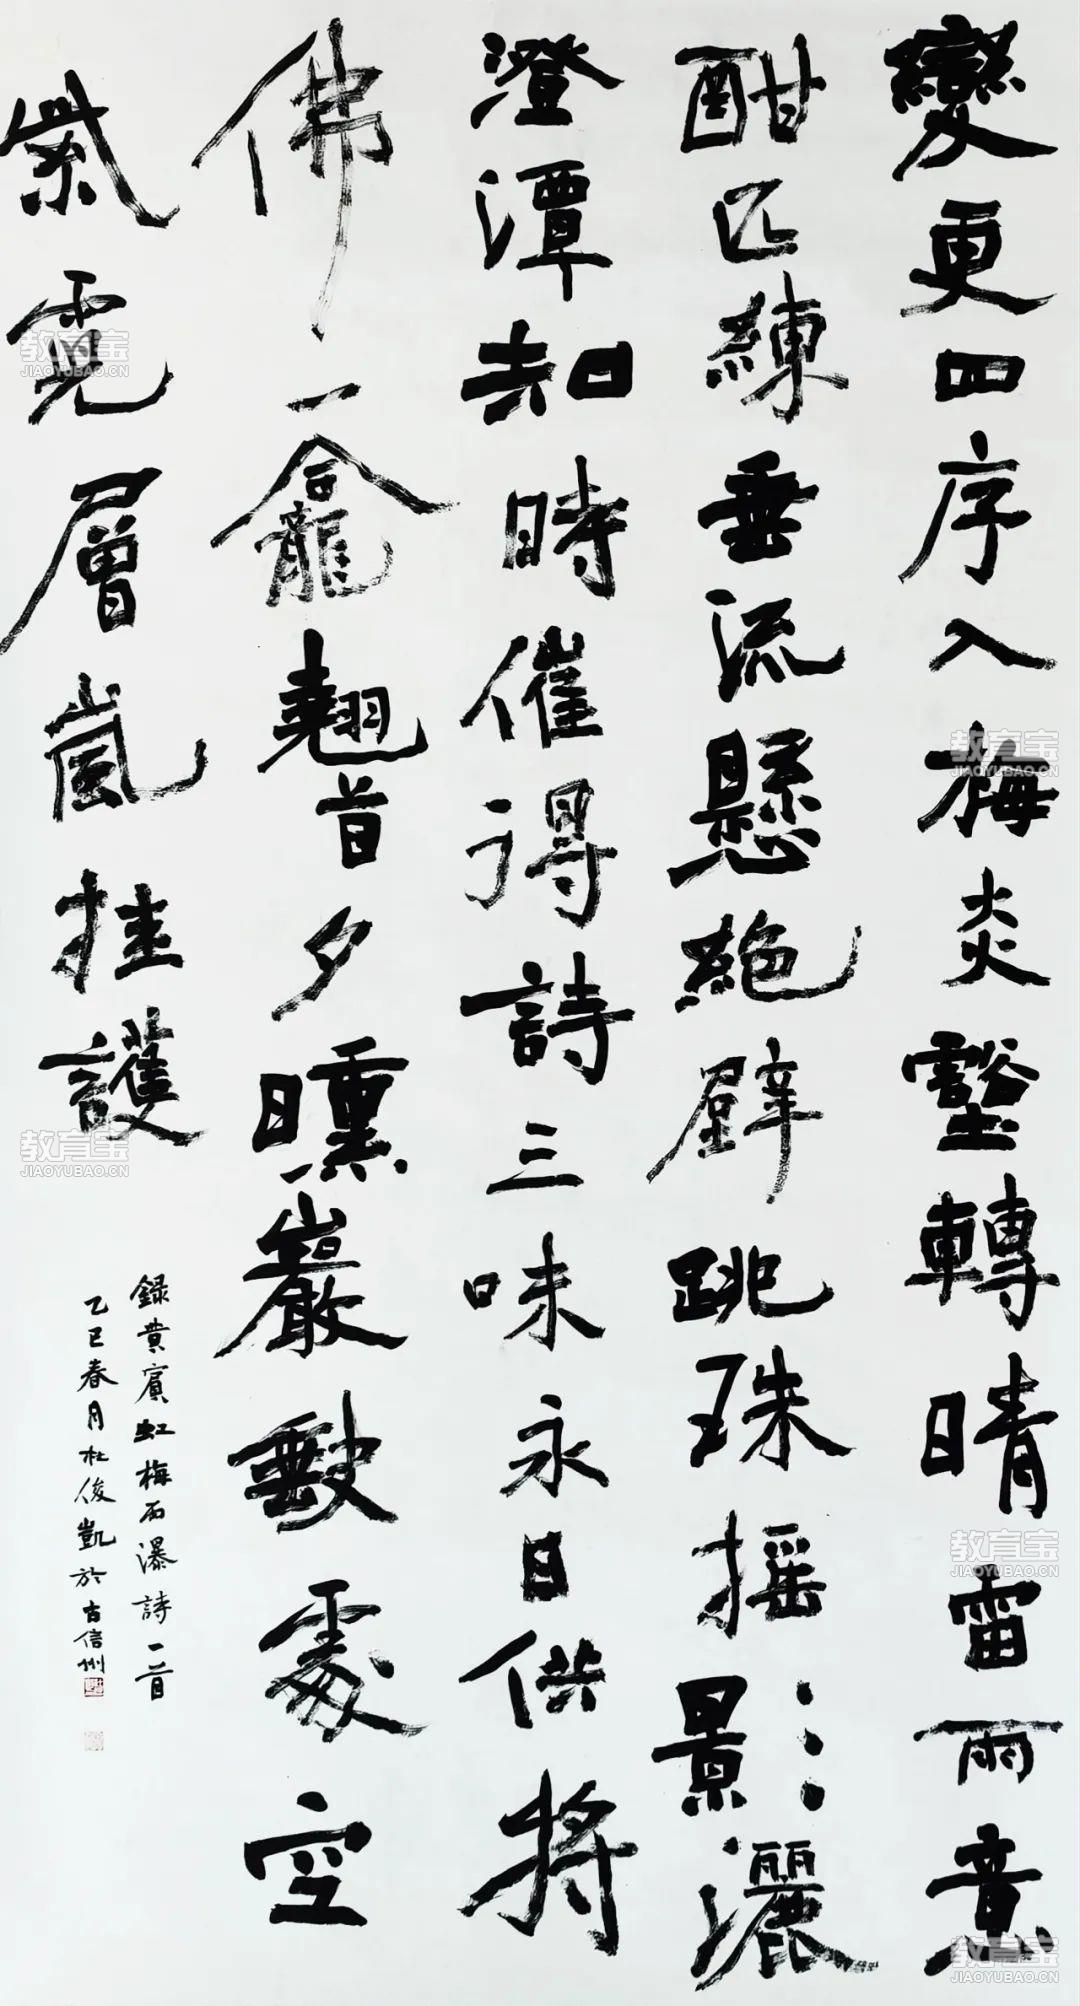 變更四序入梅炎壑轉晴雷雨意
酣匹練垂流懸絕壁跳珠搖影灑
澄潭知時催得詩三味永日供將
佛一龕翹首夕曛巖缺處空
紫霓層嵐挂護
錄黃賓虹梅雨瀑詩一首
乙巳春月杜俊凱於古信州
教育宝
JIAOYUBAO.CN
教育宝
JIAOYUBAO.CN
教育宝
JIAOYUBAO.CN
教育宝
JIAOYUBAO.CN
教育宝
JIAOYUBAO.CN